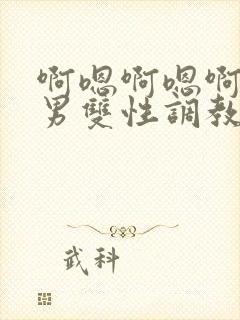 啊嗯啊嗯啊
男雙性調教
武科